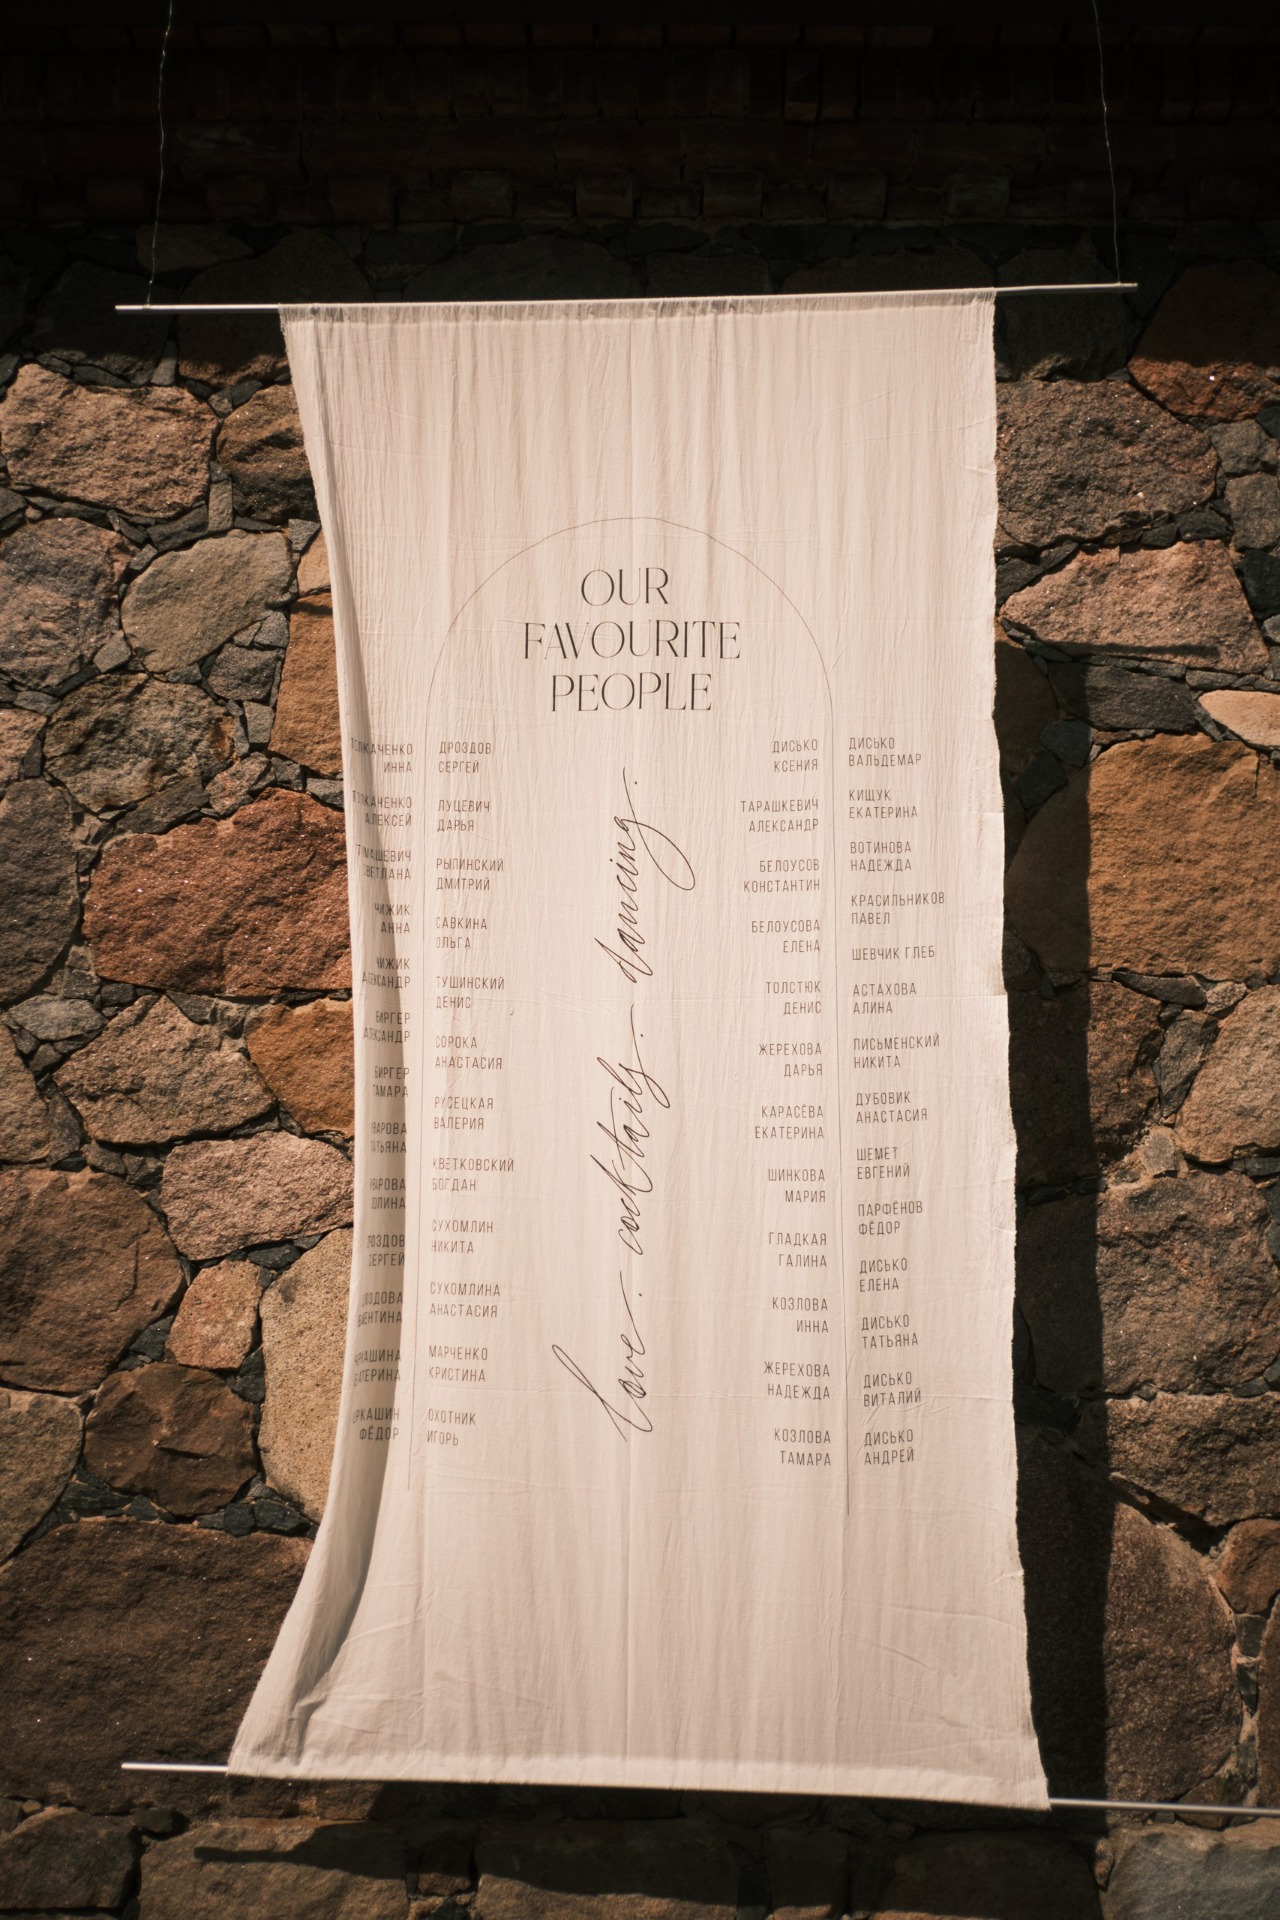 OUR
FAVOURITE
PEOPLE
ИННА
АЛЕКСЕЙ
ЧИЖИК
АННА
ЧИЖИК
АЛЕКСАНДР
БИРГЕР
АЛЕКСАНДР
БИРГЕР
ТАМАРА
СЕРГЕЙ
ФЁДОР
ДРОЗДОВ
СЕРГЕЙ
ЛУЦЕВИЧ
ДАРЬЯ
РЫПИНСКИЙ
ДМИТРИЙ
САВКИНА
ОЛЬГА
ТУШИНСКИЙ
ДЕНИС
СОРОКА
АНАСТАСИЯ
РУСЕЦКАЯ
ВАЛЕРИЯ
КВЕТКОВСКИЙ
БОГДАН
СУХОМЛИН
НИКИТА
СУХОМЛИНА
АНАСТАСИЯ
МАРЧЕНКО
КРИСТИНА
ОХОТНИК
ИГОРЬ
love. cocktails. dancing.
ДИСЬКО
КСЕНИЯ
ТАРАШКЕВИЧ
АЛЕКСАНДР
БЕЛОУСОВ
КОНСТАНТИН
БЕЛОУСОВА
ЕЛЕНА
ТОЛСТЮК
ДЕНИС
ЖЕРЕХОВА
ДАРЬЯ
КАРАСЁВА
ЕКАТЕРИНА
ШИНКОВА
МАРИЯ
ГЛАДКАЯ
ГАЛИНА
КОЗЛОВА
ИННА
ЖЕРЕХОВА
НАДЕЖДА
КОЗЛОВА
ТАМАРА
ДИСЬКО
ВАЛЬДЕМАР
КИЩУК
ЕКАТЕРИНА
ВОТИНОВА
НАДЕЖДА
КРАСИЛЬНИКОВ
ПАВЕЛ
ШЕВЧИК ГЛЕБ
АСТАХОВА
АЛИНА
ПИСЬМЕНСКИЙ
НИКИТА
ДУБОВИК
АНАСТАСИЯ
ШЕМЕТ
ЕВГЕНИЙ
ПАРФЁНОВ
ФЁДОР
ДИСЬКО
ЕЛЕНА
ДИСЬКО
ТАТЬЯНА
ДИСЬКО
ВИТАЛИЙ
ДИСЬКО
АНДРЕЙ